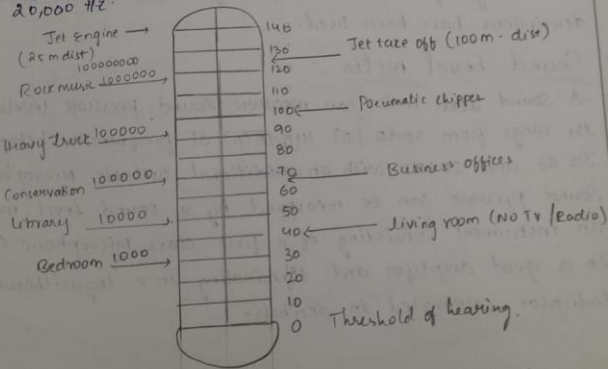 20,000 Hz.
Jet Engine
(25m dist)
100000000
Rock music 1000000
Heavy truck 100000
Conservation 100000
Library 10000
Bedroom 1000
140
130
120
110
100
90
80
70
60
50
40
30
20
10
0
Jet take off (100m - dist)
Pneumatic chipper
Business offices
living room (NO TV / Radio)
Threshold of hearing.